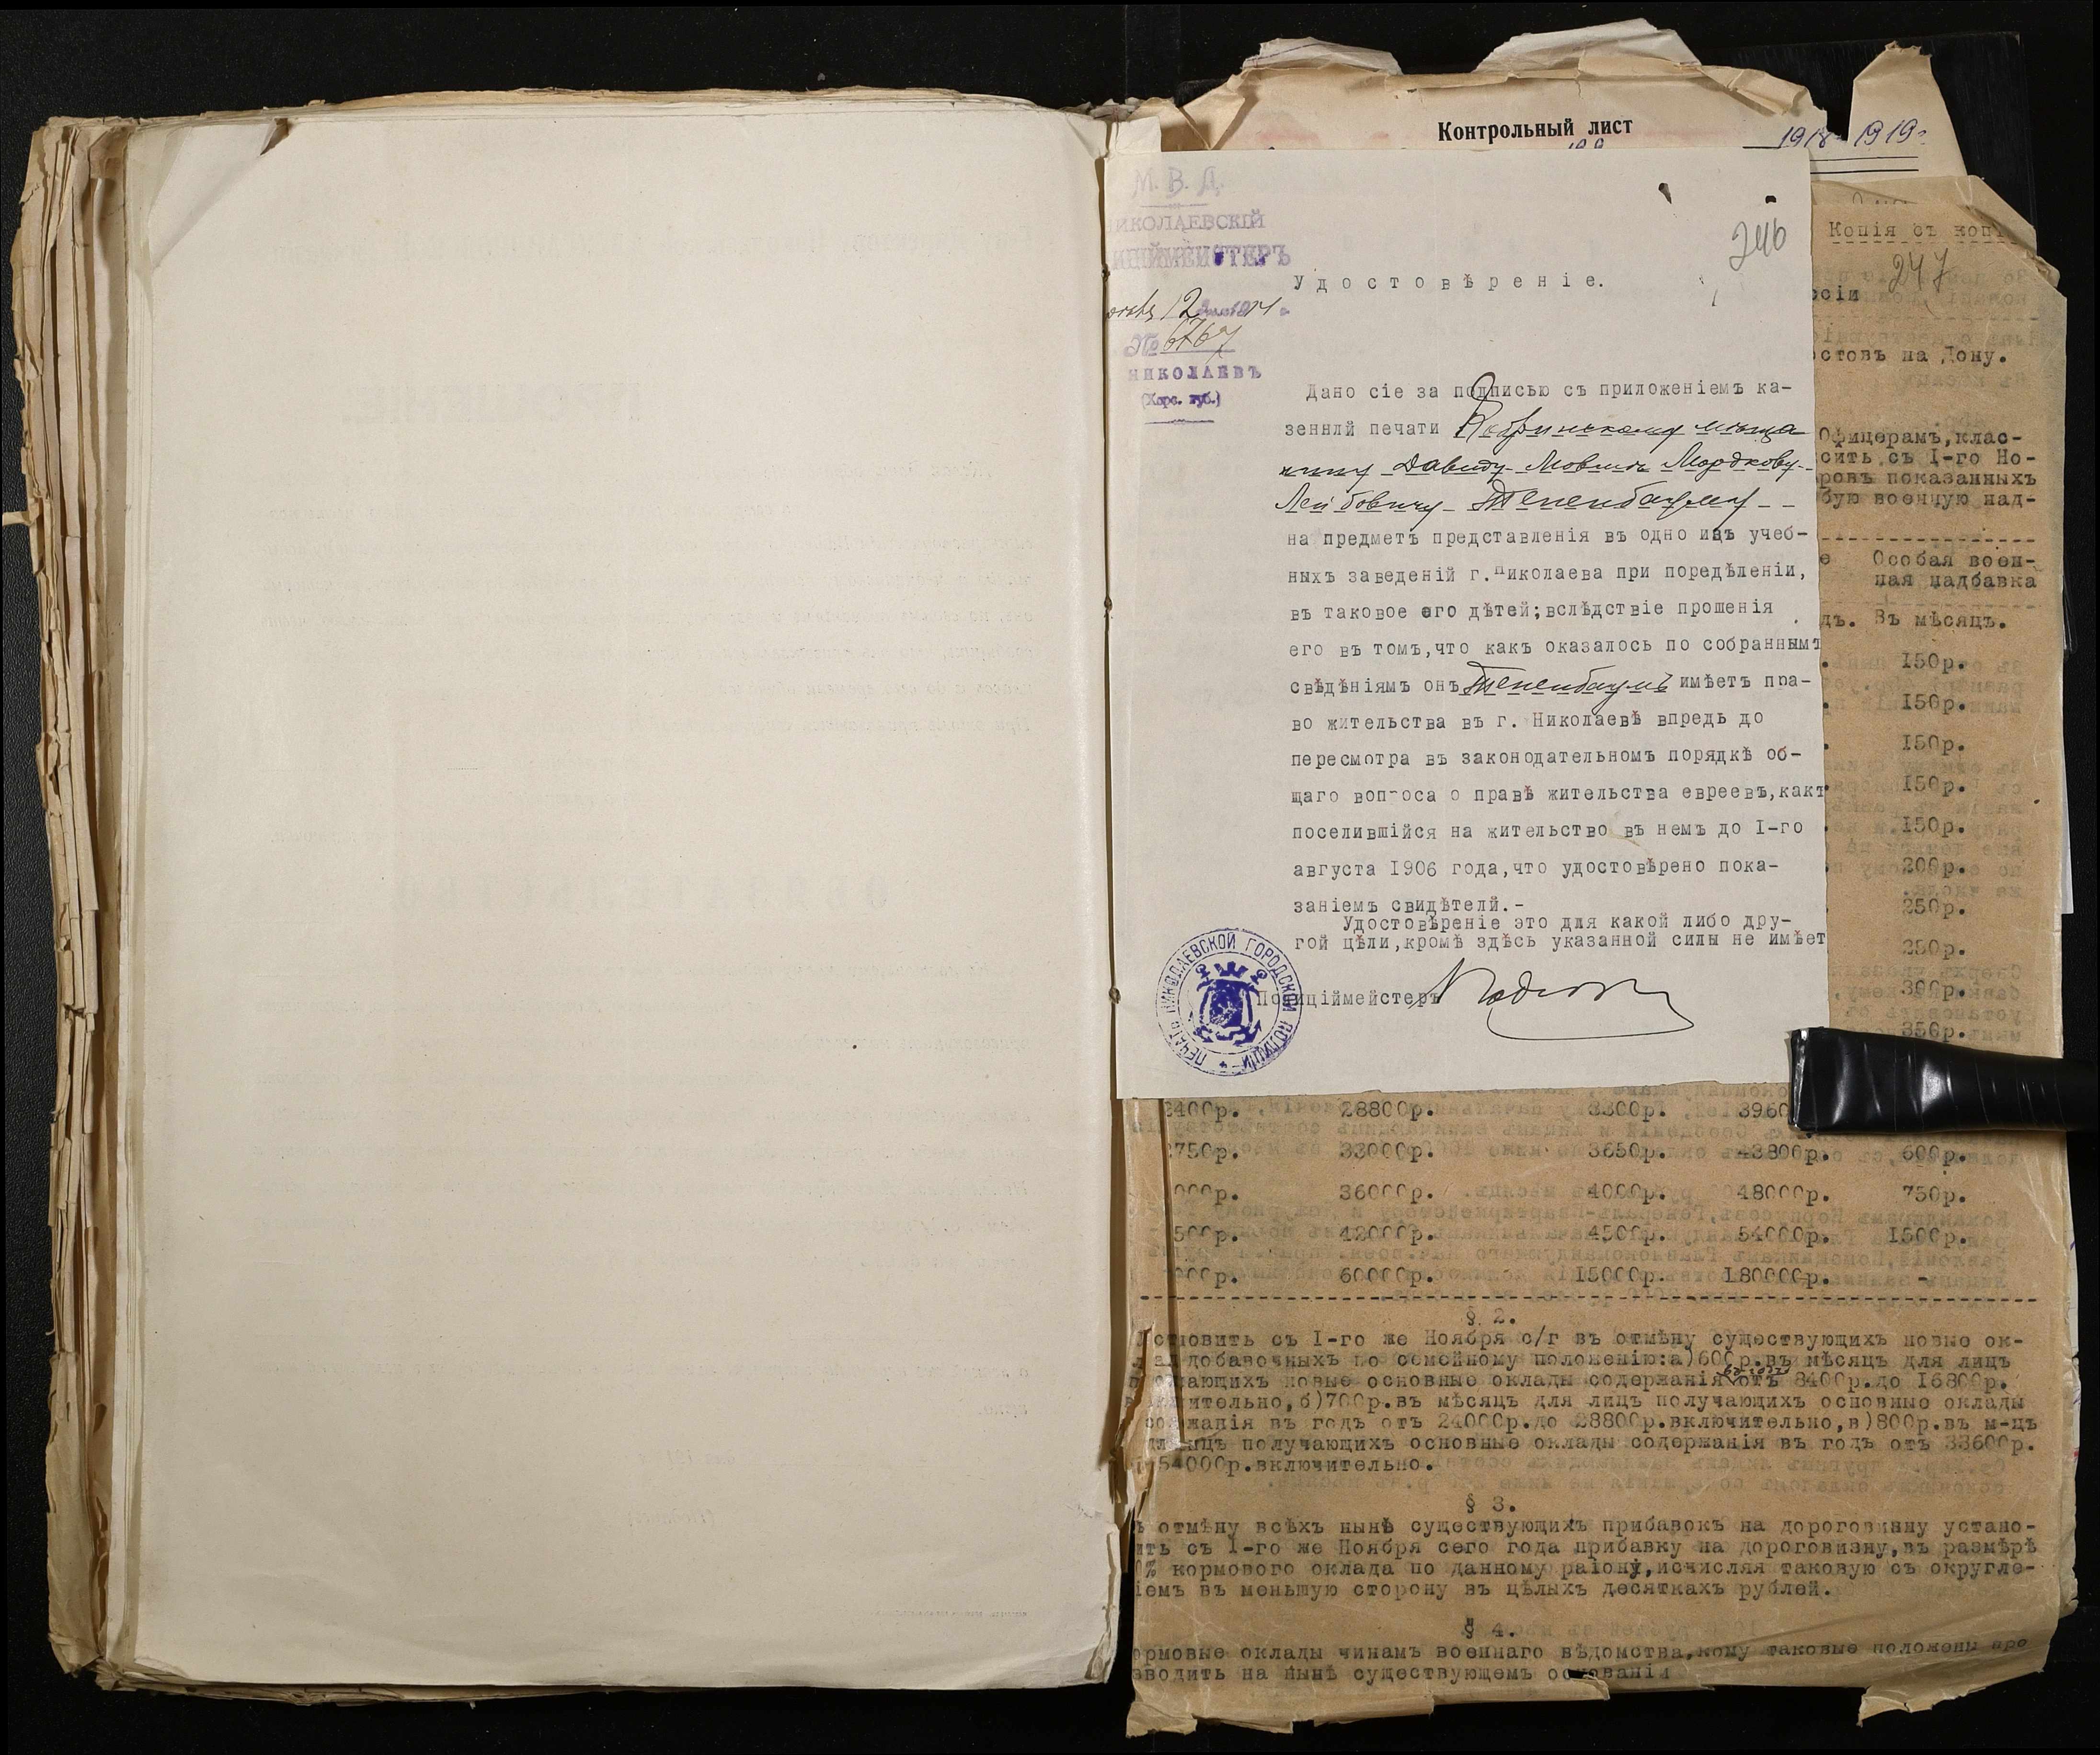 Контрольный лист
1918-1919г.
М. В. Д.
НИКОЛАЕВСКІЙ
№ 6767
НИКОЛАЕВЪ
(Херс. губ.)
246
Удостовѣреніе.
Дано сіе за подписью съ приложеніемъ ка-
зеннлй печати Кобринскому мѣща
нину Давиду-Мовша Мордкову-
Лейбовичу Тененбауму - -
на предметъ представленія въ одно изъ учеб-
ныхъ заведеній г.Николаева при поредѣленіи,
въ таковое его дѣтей;вслѣдствіе прошенія
его въ томъ,что какъ оказалось по собраннымъ
свѣдѣніямъ онъ Тененбаумъ имѣетъ пра-
во жительства въ г. Николаевѣ впредь до
пересмотра въ законодательномъ порядкѣ об-
щаго вопроса о правѣ жительства евреевъ,какъ
поселившійся на жительство въ немъ до I-го
августа 1906 года,что удостовѣрено пока-
заніемъ свидѣтелй.-
Удостовѣреніе это для какой либо дру-
гой цѣли,кромѣ здѣсь указанной силы не имѣет
Полиціймейстеръ
ПЕЧАТЬ НИКОЛАЕВСКОЙ ГОРОДСКОЙ ПОЛИЦІИ
Копія съ копі
247
остовъ на Дону.
Офицерамъ,клас-
сить съ I-го Но-
ровъ показанныхъ
бую военную над-
Особая воен-
ная надбавка
Въ мѣсяцъ.
150р.
150р.
150р.
150р.
150р.
200р.
250р.
250р.
300р.
350р.
2400р. 28800р. 3300р. 3960
2750р. 33000р. 3650р. 43800р. 600р.
000р. 36000р. 4000р. 48000р. 750р.
500р. 42000р. 4500р. 54000р. 1500р.
000р. 60000р. 15000р. 180000р. -
§ 2.
становить съ I-го же Ноября с/г въ отмѣну существующихъ новые ок-
добавочныхъ по семейному положенію:а)600р.въ мѣсяцъ для лицъ
получающихъ новые основные оклады содержанія отъ 8400р.до 16800р.
включительно,б)700р.въ мѣсяцъ для лицъ получающихъ основные оклады
содержанія въ годъ отъ 24000р.до 28800р.включительно,в)800р.въ м-цъ
для лицъ получающихъ основные оклады содержанія въ годъ отъ 33600р.
54000р.включительно.
§ 3.
ъ отмѣну всѣхъ нынѣ существующихъ прибавокъ на дороговизну устано-
ить съ I-го же Ноября сего года прибавку на дороговизну,въ размѣрѣ
0% кормового оклада по данному району,исчисляя таковую съ округле-
іемъ въ меньшую сторону въ цѣлыхъ десяткахъ рублей.
§ 4.
ормовые оклады чинамъ военнаго вѣдомства,кому таковые положены про
зводить на нынѣ существующемъ основаніи